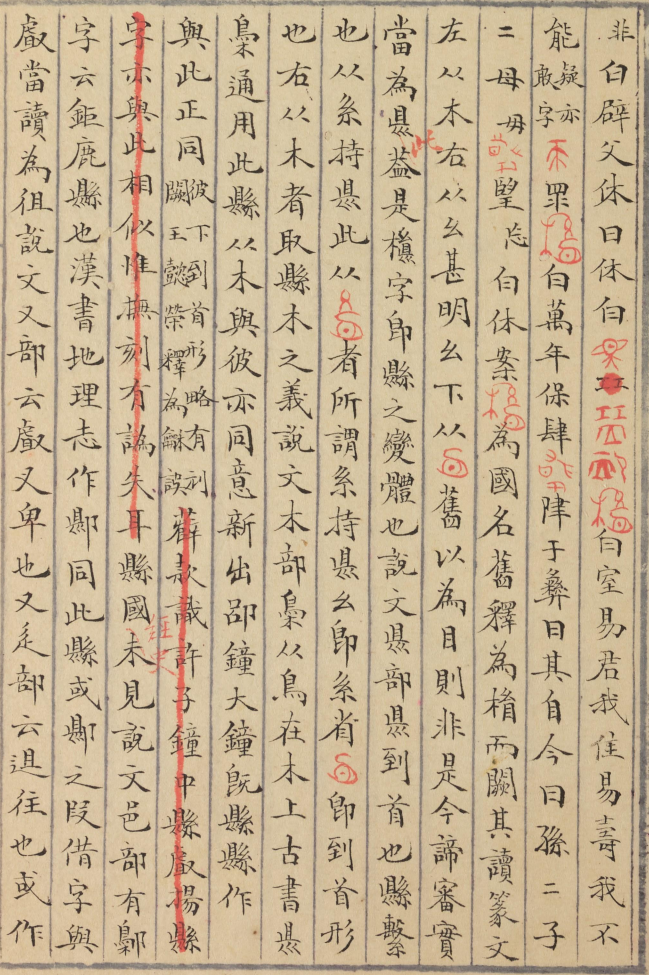 非白辟父休日休白白室易君我隹易壽我不
能疑亦敢字罘白萬年保肆陣于彝曰其自今日孫二子
二毋毋朢忘白休案為國名舊釋為楷而闕其讀篆文
左从木右从幺甚明幺下从舊以為目則非是今諦審實
當為㬎葢是㯭字即縣之變體也說文㬎部㬎到首也縣繫
也从系持㬎此从者所謂系持㬎幺即系省即到首形
也右从木者取縣木之義說文木部梟从鳥在木上古書㬎
梟通用此縣从木與彼亦同意新出邵鐘大鐘旣縣縣作
與此正同彼下到首形略有刓闕王懿榮釋為龢誤薛款識許子鐘中縣䖒揚縣
字亦與此相似惟撫刻有譌失耳縣國經史未見說文邑部有鄡
字云鉅鹿縣也漢書地理志作鄡同此縣或鄡之叚借字與
䖒當讀為徂說文又部云䖒又卑也又辵部云退往也或作